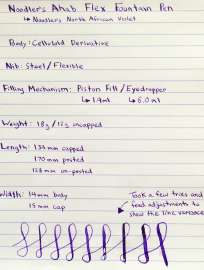 Noodler's Ahab Flex Fountain Pen
↳ Noodler's North African Violet
Body: Celluloid Derivative
Nib: Steel/Flexible
Filling Mechanism: Piston Fill/Eyedropper
↳ 1.9ml ↳ 6.0ml
Weight: 18g / 12g uncapped
Length: 139mm capped
170mm posted
128mm un-posted
Width: 14mm body
15mm cap
Took a few tries and
feed adjustments to
show the line variance